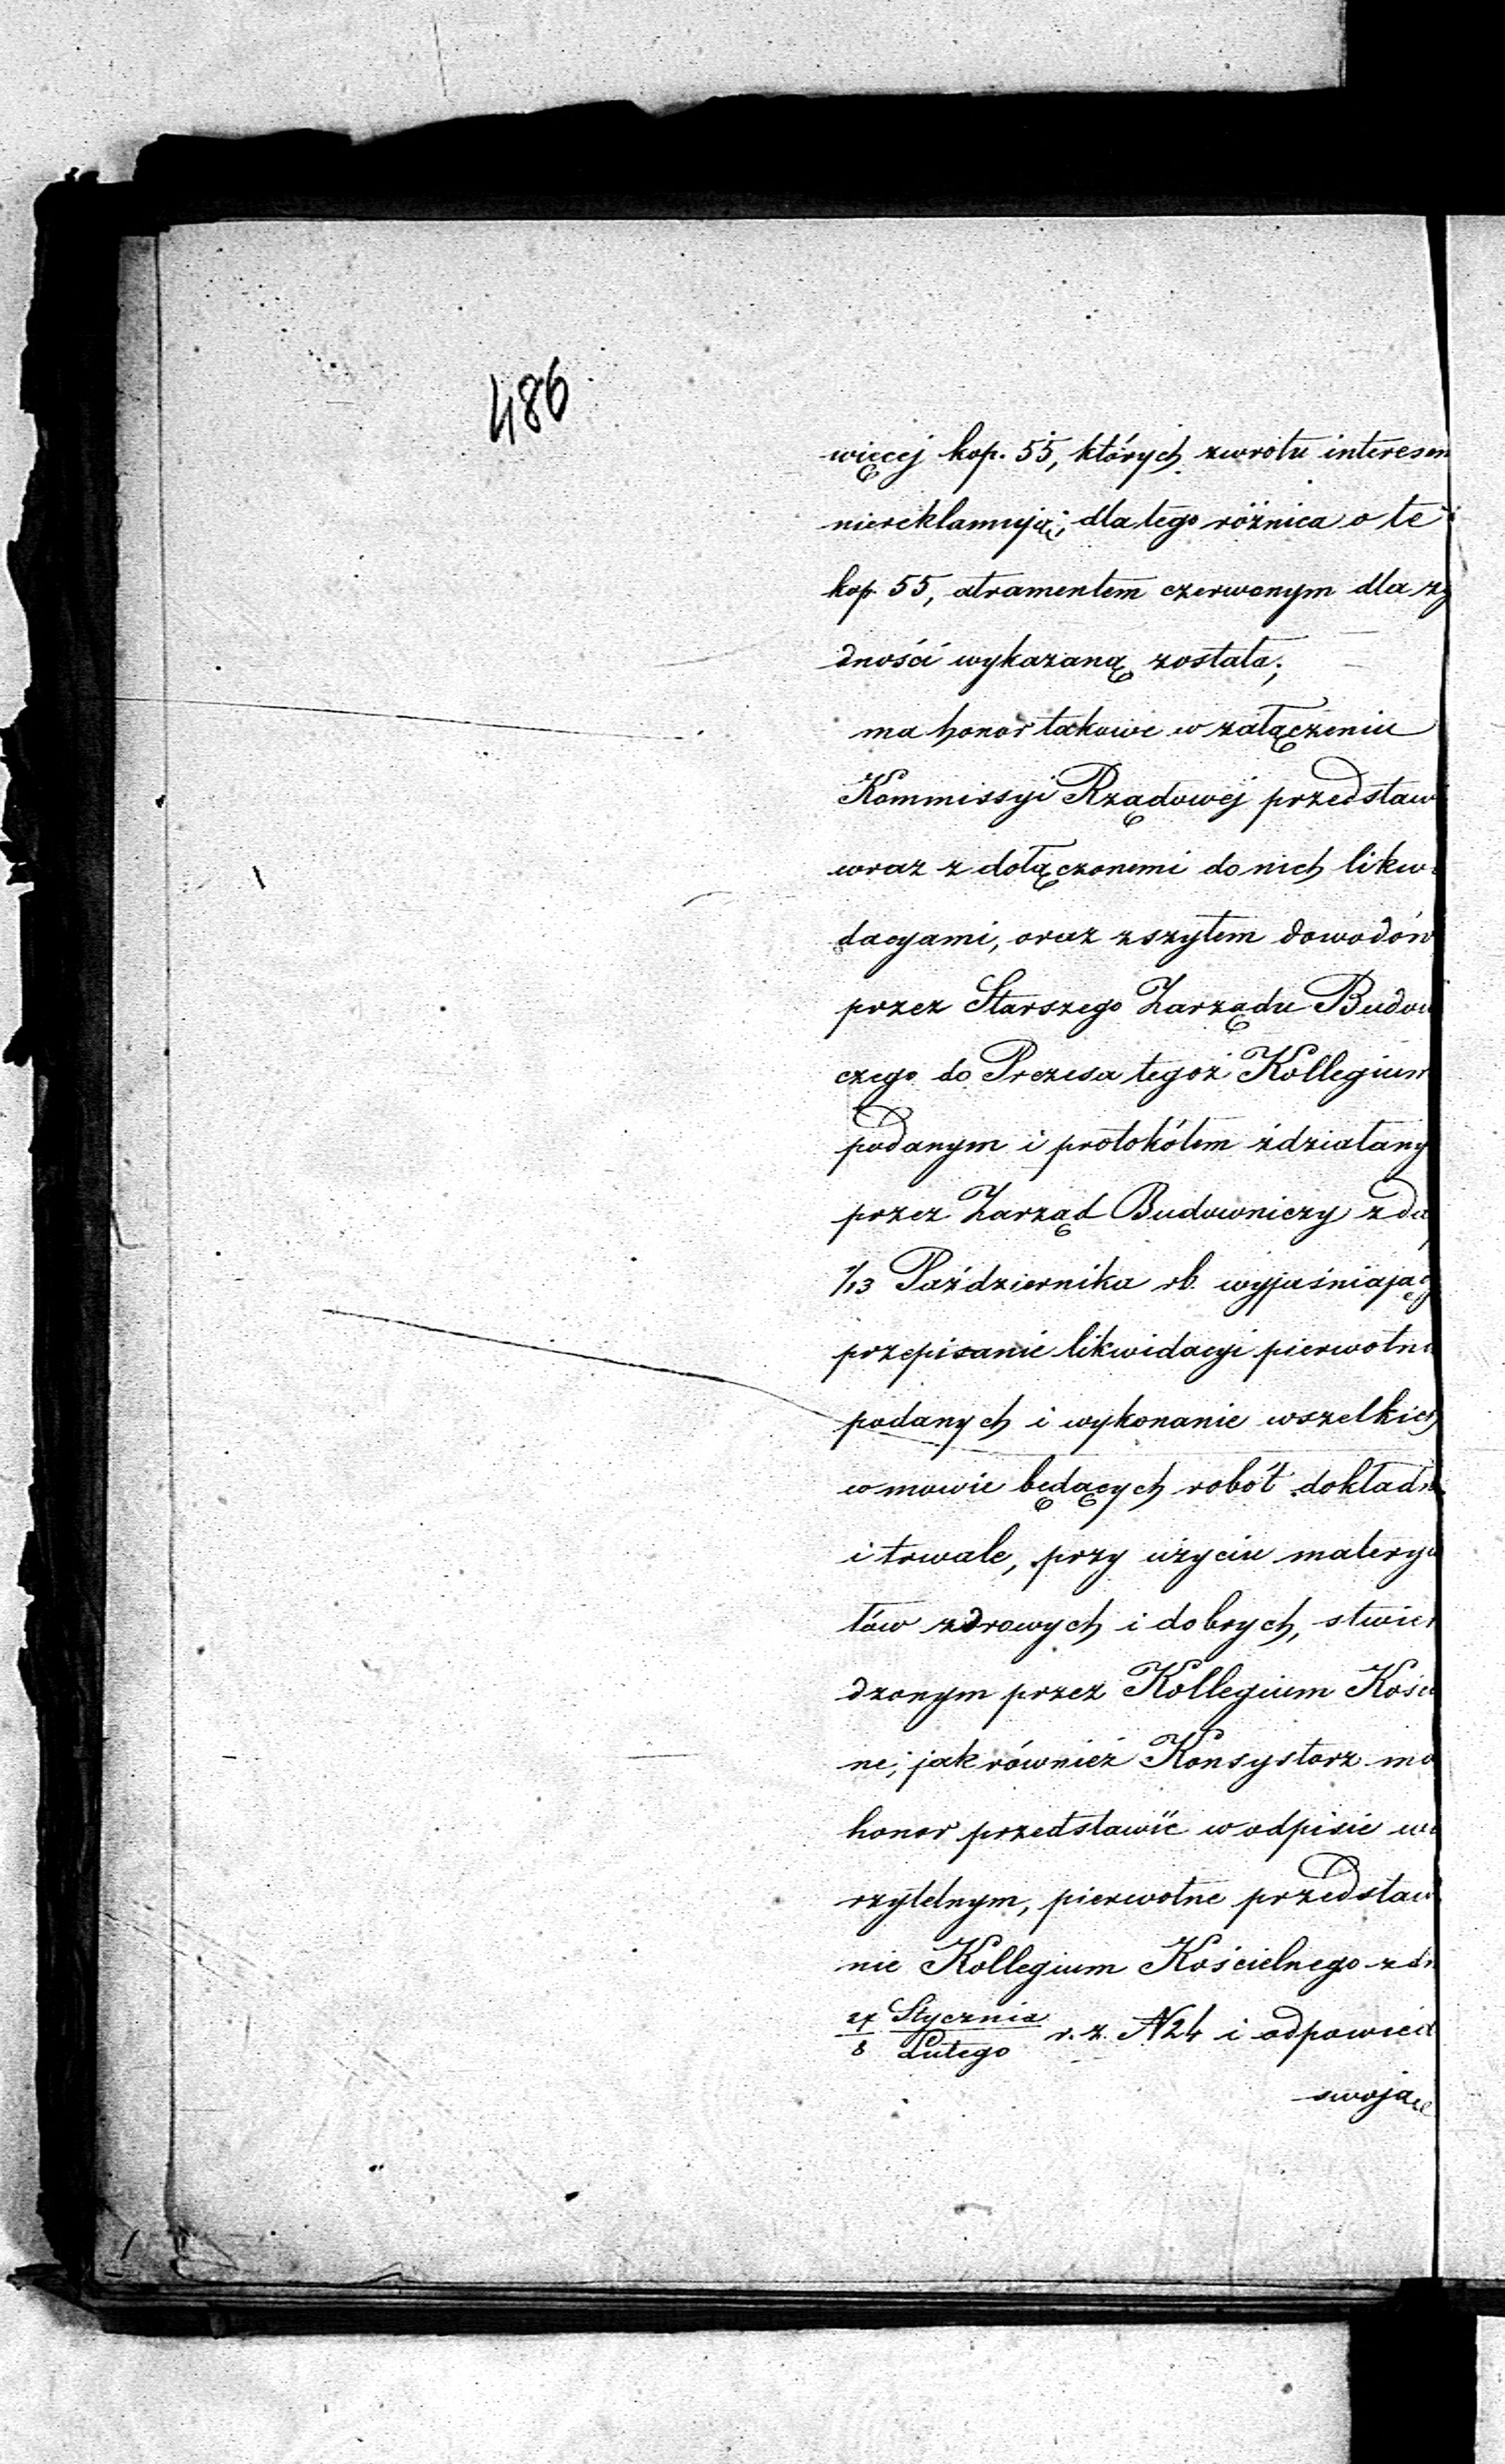 486
więcej kop. 55, których zwrotu interesen
niereklamują; dla tego różnica o te
kop. 55, atramentem czerwonym dla zg
dności wykazaną została;
ma honor takowe w załączeniu
Kommissyi Rządowej przedstaw
wraz z dołączonemi do nich likwi
dacyami, oraz zszytem dowodów
przez Starszego Zarządu Budow
czego do Prezesa tegoż Kollegium
podanym i protokółem zdziałany
przez Zarząd Budowniczy z da
1/13 Października rb. wyjaśniając
przepisanie likwidacyi pierwotnie
podanych i wykonanie wszelkich
w mowie będących robót dokładn
i trwale, przy użyciu materya
łów zdrowych i dobrych, stwier
dzonym przez Kollegium Kości
ne; jak również Konsystorz ma
honor przedstawić w odpisie wi
rzytelnym, pierwotne przedstaw
nie Kollegium Kościelnego z dn
27/8 Stycznia/Lutego r. z. N 24 i odpowied
swoją